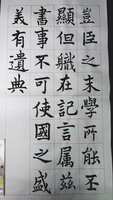 豈臣之末學所能丕
顯但職在記言属茲
書事不可使國之盛
義有遺典